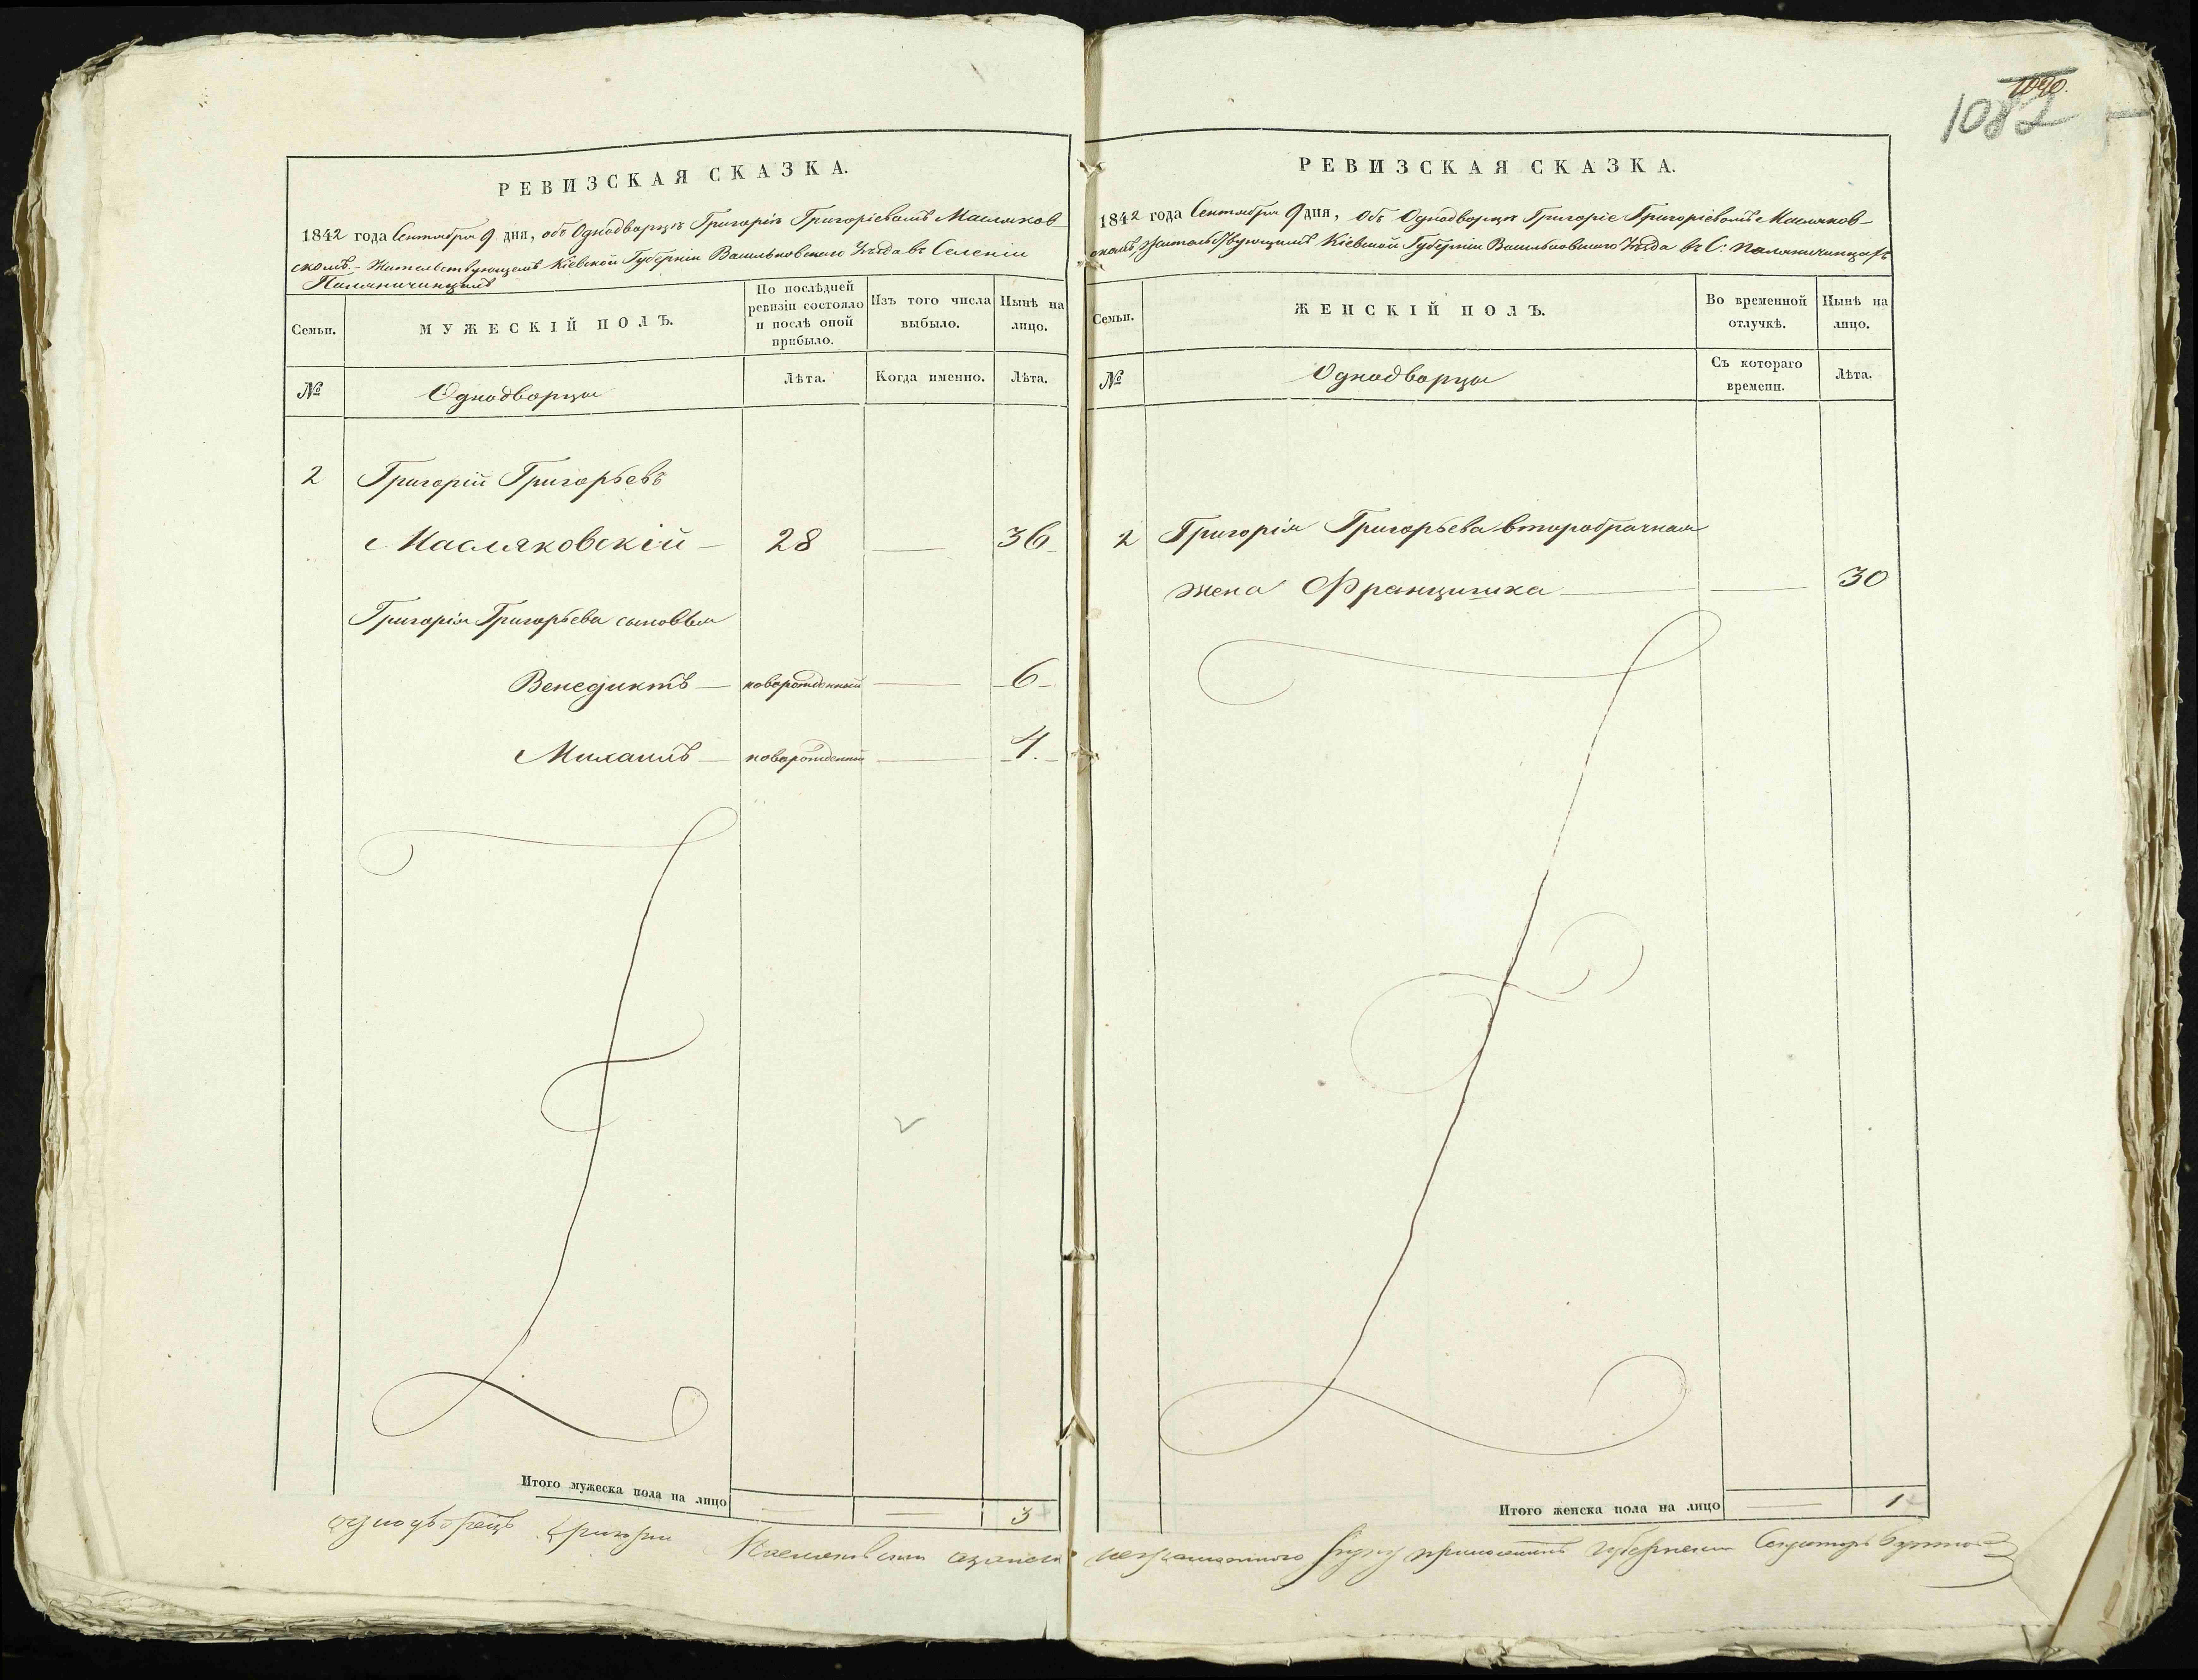 1090.
1082
РЕВИЗСКАЯ СКАЗКА.
1842 года Сентября 9 дня, объ Однодворцѣ Григоріѣ Григоріевомъ Масляков-
скомъ. - Жительствующемъ Кіевской Губерніи Васильковского Уѣзда въ Селеніи
Паляничинцахъ
Семьи.
МУЖЕСКІЙ ПОЛЪ.
По послѣдней
ревизіи состояло
и послѣ оной
прибыло.
Изъ того числа
выбыло.
Нынѣ на
лицо.
№
Однодворцы
Лѣта.
Когда именно.
Лѣта.
2 Григорій Григорьевъ
Масляковскій - 28 — 36
Григорія Григорьева сыновья
Венедиктъ — новорожденный — 6
Михаилъ — новорожденный — 4.
Итого мужеска пола на лицо — — 3
однодворецъ Григорій
РЕВИЗСКАЯ СКАЗКА.
1842 года Сентября 9 дня, Объ Однодворцѣ Григоріе Григоріевомъ Масляков-
скомъ, Жительствующимъ Кіевской Губерніи Васильковского Уѣзда въ С: Паляничинцахъ
Семьи.
ЖЕНСКІЙ ПОЛЪ.
Во временной
отлучкѣ.
Нынѣ на
лицо.
№
Однодворцы
Съ котораго
времени.
Лѣта.
2 Григорія Григорьева второбрачная
жена Францишка — — 30
Итого женска пола на лицо — 1